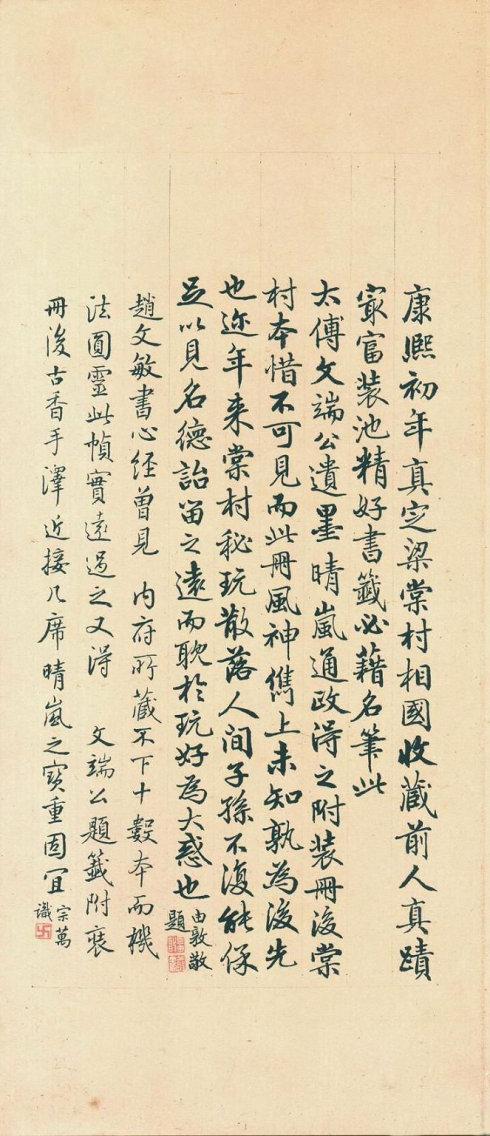 康熙初年真定梁棠村相國收蔵前人真蹟
冣富装池精好書籤必藉名筆此
太傅文端公遺墨晴嵐通政得之附装冊後棠
村本惜不可見而此冊風神儁上未知孰為後先
也迩年来棠村秘玩散落人間子孫不復能保
足以見名德詒留之遠而耽於玩好為大惑也
由敦敬
題
趙文敏書心經曽見 内府所藏不下十數本而機
法圓靈此幀實遠過之又得 文端公題籤附裝
冊後古香手澤近接几席晴嵐之寶重固宜
宗萬
識